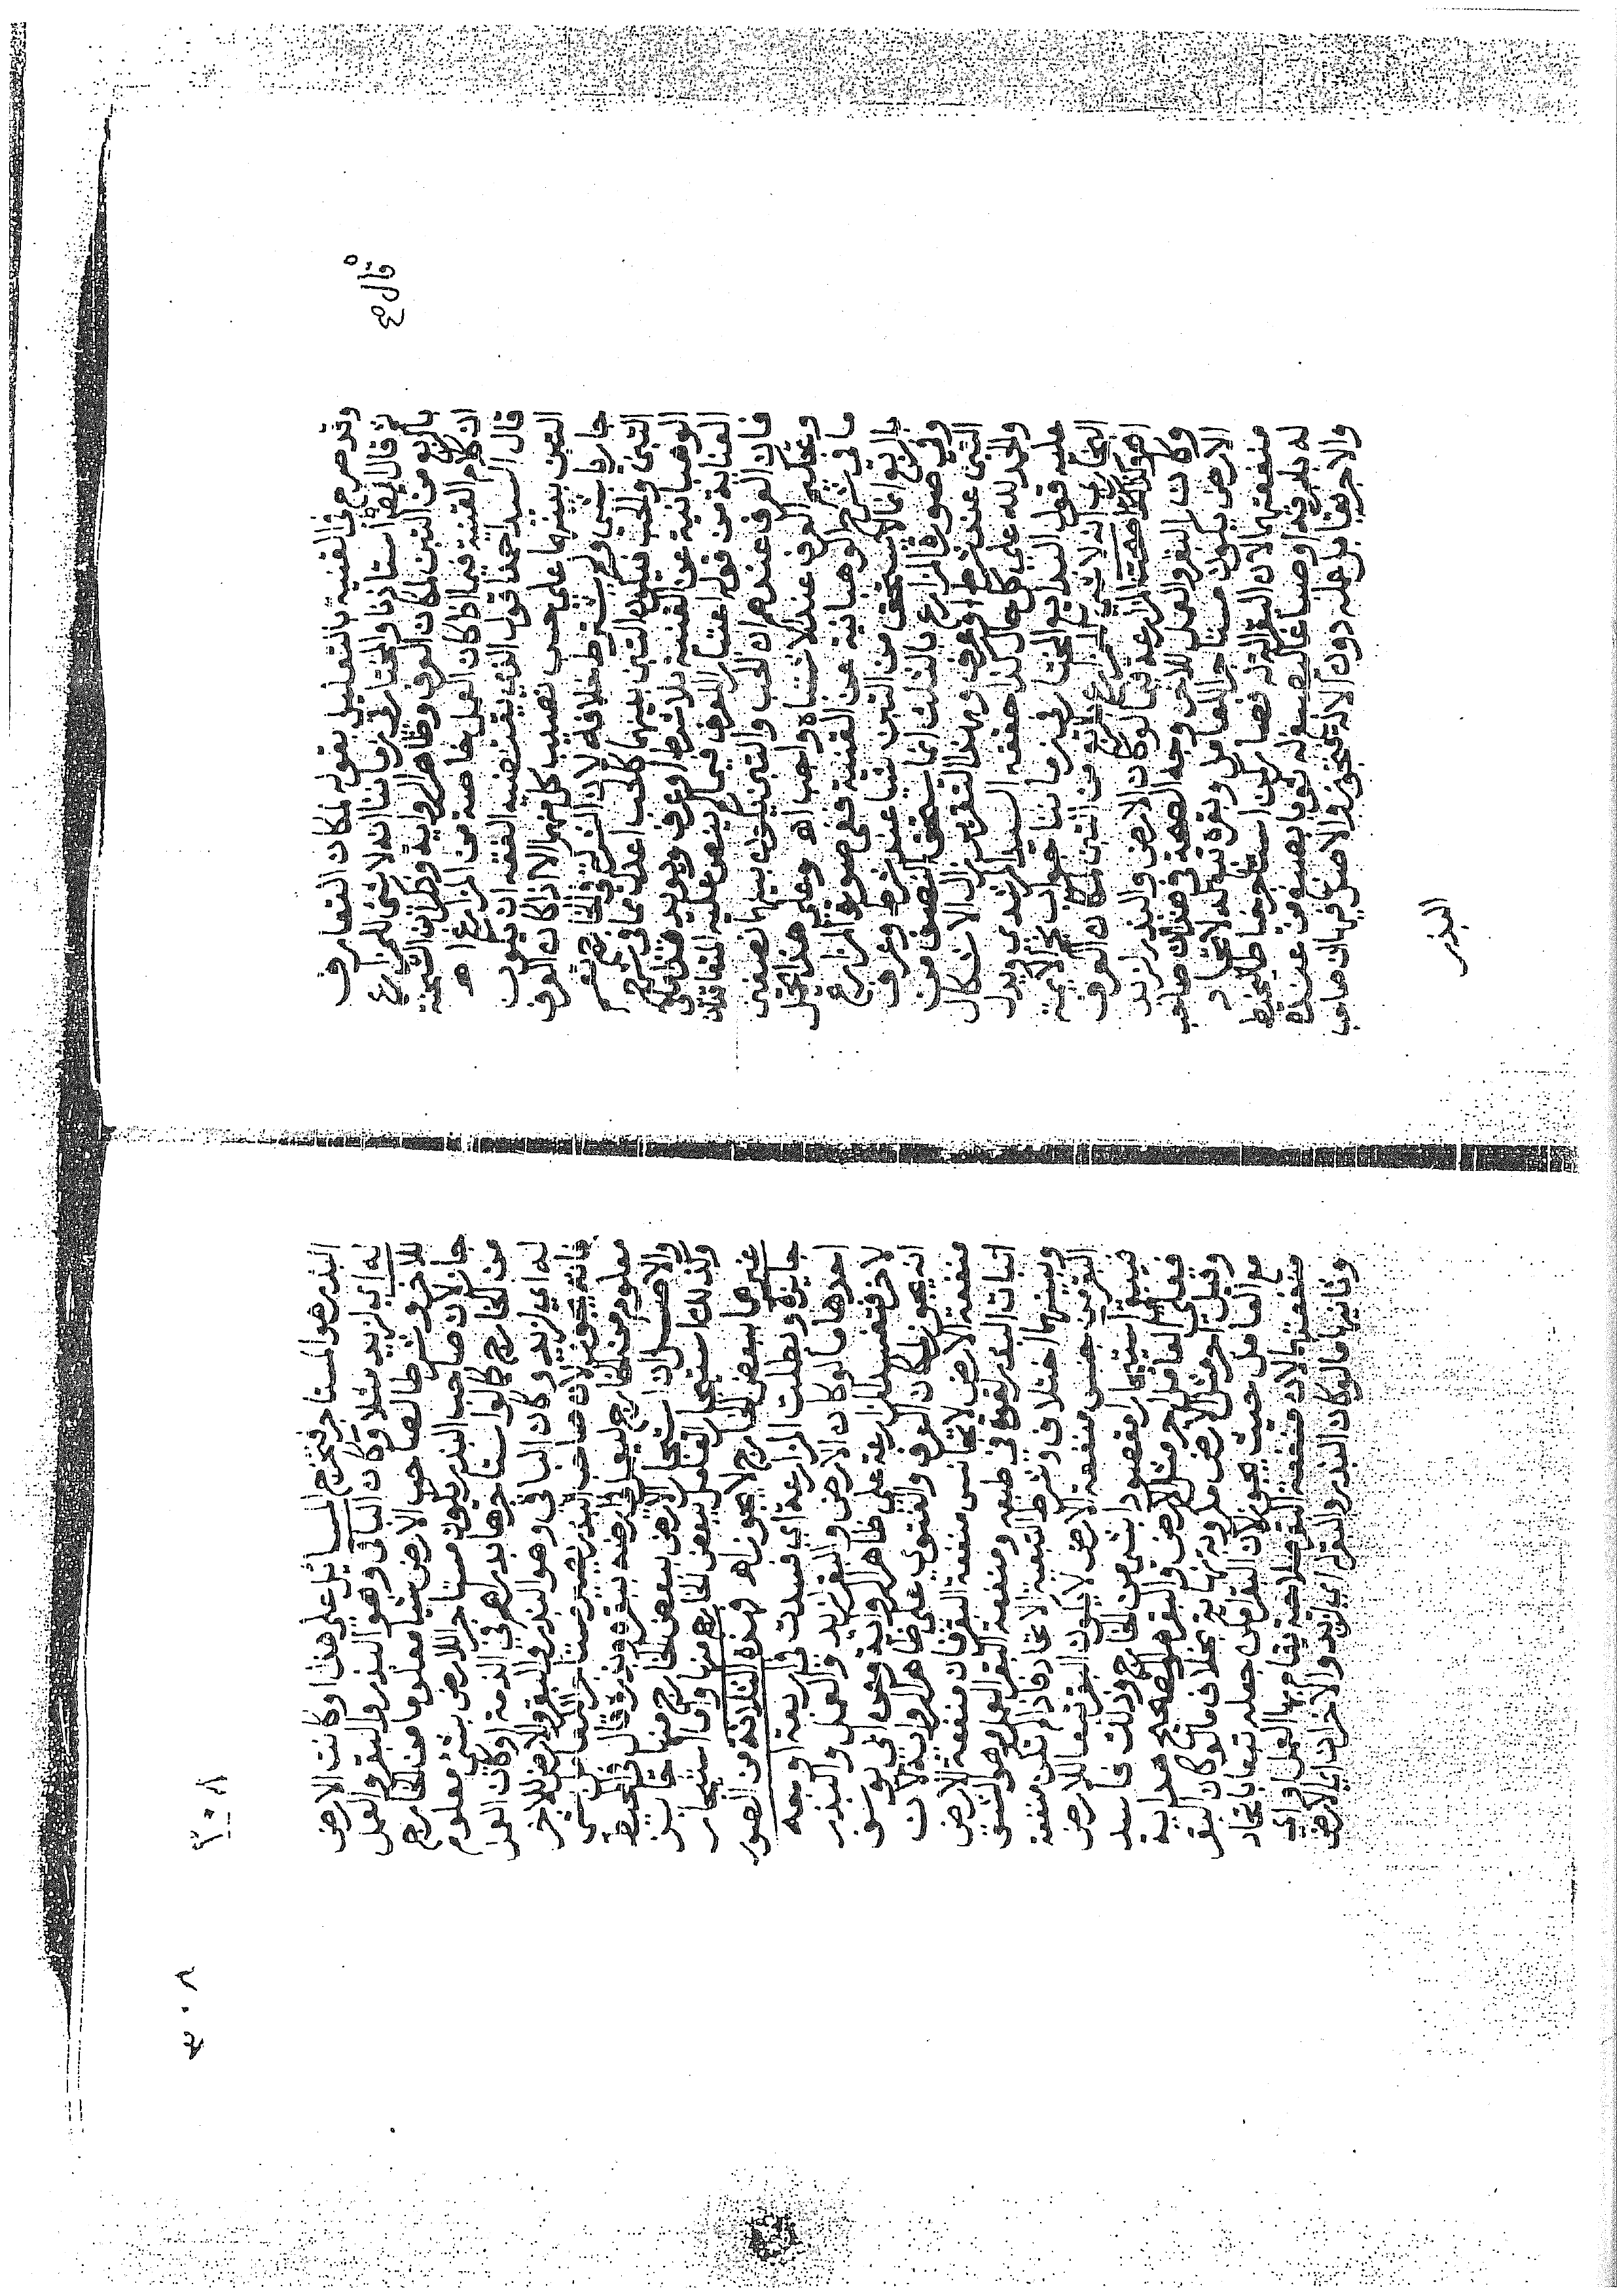 قال ع
وقد صرح في القنية بالتعليل بقوله لمكان التعارف
ثم قال استاذنا والمختار في زماننا انه لا شي للمزارع
بالربع من التبن لمكان العرف وظاهر الرواية
ان كلام القنية فيما اذا كان العمل خاصة من المزارع اه
قال السيد احمد قوله الذي يقتضيه الفقه ان يكون
التبن بينهما على حسب نصيب كل منهما الا اذا كان العرف
جاريا بشي ولم يشترط خلافه لان الشركة في الخارج تعم
التبن والحب فيكون التبن بينهما كالحب اعدل مما في شرح
الوهبانية عن القنية بلا شرط او عرف ويويد هذا ما في
العناية من قوله اعتبار العرف فيما لم ينص عليه المتعاقدان
فان العرف عندهم ان الحب والتبن يكون بينهما نصفين
وتحكيم العرف عند الاشتباه واجب اه وعلى هذا يحمل
ما في شرح الوهبانية عن القنية ففي صورة المزارع
بالربع انما لا يستحق من التبن شيا عند شرط وعرف
وفي صورة المزارع بالثلث انما يستحق النصف من
التبن عند شرط او عرف وبهذا التقرير زال الاشكال
والحمد لله على كل حال كذا حققه السيد المرشدي ويدل
عليه قول البديع المختار في زماننا جواب الايمة
البخاري انه لا شي للمزارع بالربع من التبن لمكان العرف
اه وكذا صحت المزارعة فيما لو كان الارض والبذر لزيد
وكان البقر والعمل للاخر وجه الصحة في هذا ان صاحب
الارض يكون مستاجرا للعامل وبقره تبع له لاتحاد
منفعتهما لان البقر آلة له فصار كمن استاجر خياطا ليخيط
له بابرته او صباغا ليصبغ له ثوبا بصبغ من عنده
والاجر بمقابلة عمله دون الالة فيجوز والاصل فيها ان صاحب
البذر
٣٠٨
٣٠٨
البذر هو المستاجر فتخرج المسايل على هذا وكانت الارض
له اي لزيد مثلا وكان الباقي وهو البذر والبقر والعمل
للاخر وشرطا لصاحب الارض شيا معلوما من الخارج
جاز لان صاحب البذر يكون مستاجرا للارض بشي معلوم
من الخارج كما لو استاجرها بدرهم في الذمة او كان العمل
له اي لزيد وكان الباقي وهو البذر والبقر والارض للاخر
فانه يجوز لان صاحب البذر يصير مستاجرا للعامل بشي
معلوم من الخارج ليعمل في ارضه ببقره وبذره قال في المحيط
والاصل ان استيجار الارض ببعض الخارج منها جايز
وكذلك استيجار العامل ببعض الخارج منها واما استيجار
غيرها ببعض الخارج لا يجوز اه وهذه الثلاثة من الصور
جايزة وبطلت المزارعة اي فسدت في اربعة اوجه
احدها ما لو كان الارض والبقر لزيد والعمل والبذر
لاخر فتفسد المزارعة على ظاهر الرواية وعن ابي يوسف
انه يجوز لمكان العرف والفتوى على ظاهر الرواية لان
منفعة الارض لا تجانس منفعة البقر فان منفعة الارض
انبات البذر لقوة في طبعه ومنفعة البقر العمل وهو الشق
وبينهما اختلاف وشرط التبعية الاتحاد فاذا لم تكن منفعة
البقر من جنس منفعة الارض لا يكون البقر تبعا للارض
فيبقى استيجار مقصودا بشي من الخارج وذلك فاسد
فيغرم العامل اجر مثل الارض والبقر هو الصحيح هداية
وقيل اجر مثل الارض مكروبة نهاية بخلاف ما لو كان البقر
مع العامل حيث يجوز لان البقر امكن جعله تبعا باتحاد
منفعتهما لان منفعة البقر صلاحية يقام بها العمل
وثانيها ما لو كان البذر والبقر اي لزيد والاخران اي الارض